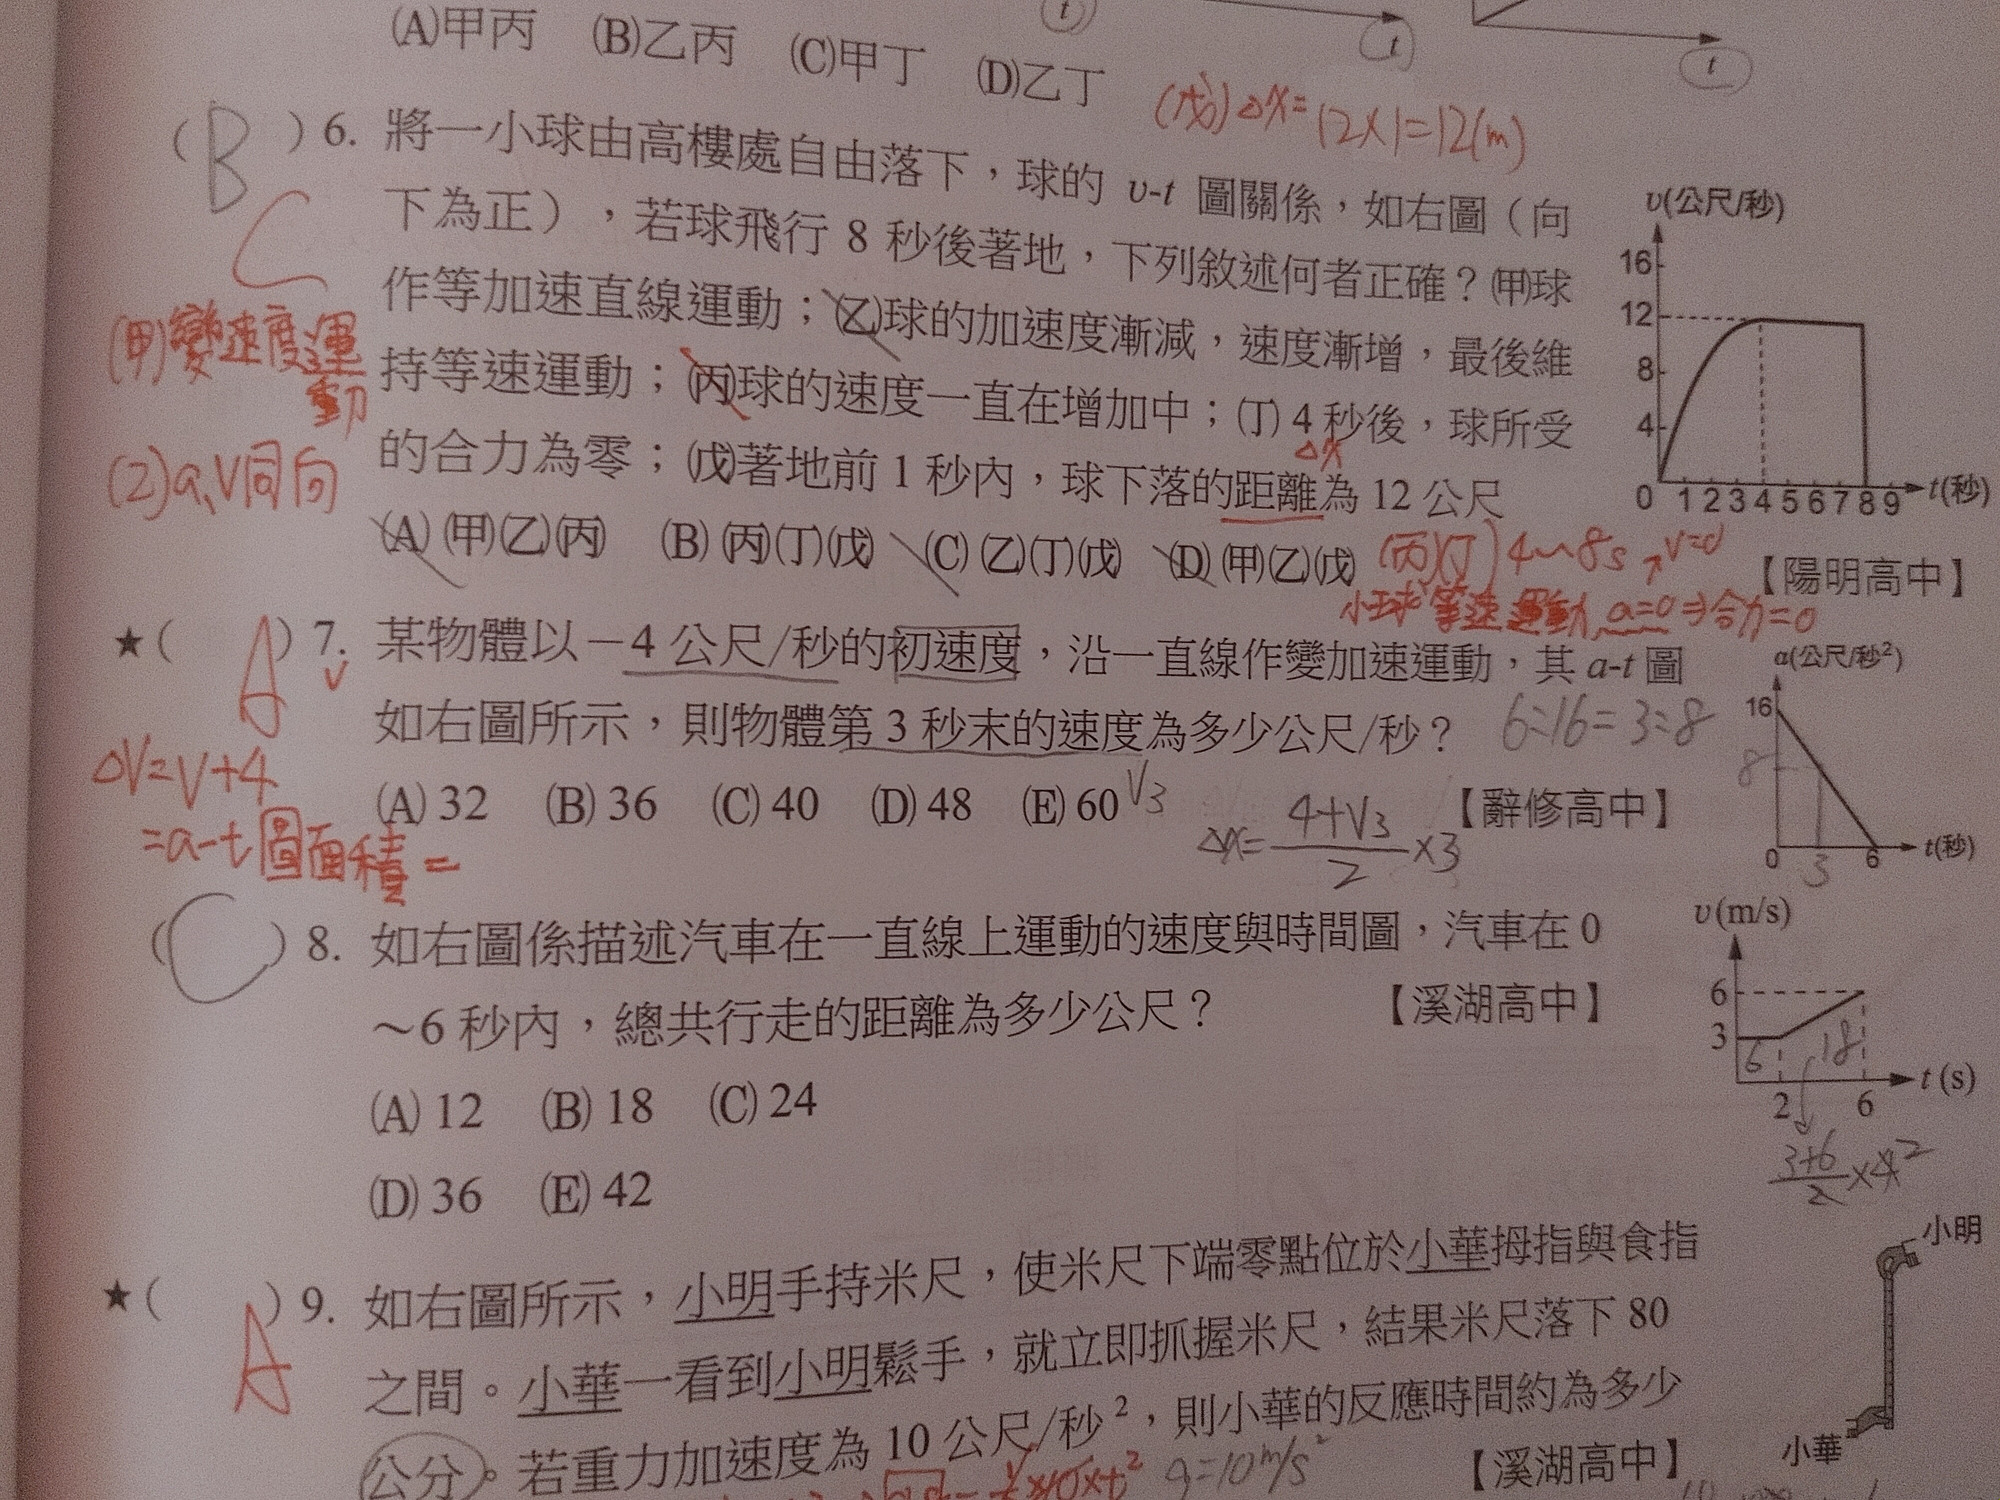 (A)甲丙 (B)乙丙 (C)甲丁 (D)乙丁
t
t
t
(戊)△x=12×1=12(m)
(B)6. 將一小球由高樓處自由落下，球的 v-t 圖關係，如右圖（向
C
下為正），若球飛行 8 秒後著地，下列敘述何者正確？(甲)球
作等加速直線運動；(乙)球的加速度漸減，速度漸增，最後維
持等速運動；(丙)球的速度一直在增加中；(丁) 4 秒後，球所受
△x
的合力為零；(戊)著地前 1 秒內，球下落的距離為 12 公尺
(A) (甲)(乙)(丙) (B) (丙)(丁)(戊) (C) (乙)(丁)(戊) (D) (甲)(乙)(戊)
【陽明高中】
(甲)變速度運
動
(2)a、v同向
(丙)(丁) 4~8s
小球等速運動 a=0⇒合力=0
v(公尺/秒)
16
12
8
4
0 1 2 3 4 5 6 7 8 9 t(秒)
★(A)7. 某物體以－4 公尺/秒的初速度，沿一直線作變加速運動，其 a-t 圖
如右圖所示，則物體第 3 秒末的速度為多少公尺/秒？
6:16=3:8
(A) 32 (B) 36 (C) 40 (D) 48 (E) 60 V3
【辭修高中】
△V=V+4
=a-t圖面積=
△x= 4+V3 / 2 ×3
a(公尺/秒²)
16
8
0 3 6 t(秒)
(C)8. 如右圖係描述汽車在一直線上運動的速度與時間圖，汽車在 0
～6 秒內，總共行走的距離為多少公尺？ 【溪湖高中】
(A) 12 (B) 18 (C) 24
(D) 36 (E) 42
v(m/s)
6
3
6 18
2 6 t (s)
3+6 / 2 ×4 2
★(A)9. 如右圖所示，小明手持米尺，使米尺下端零點位於小華拇指與食指
之間。小華一看到小明鬆手，就立即抓握米尺，結果米尺落下 80
公分。若重力加速度為 10 公尺/秒²，則小華的反應時間約為多少
【溪湖高中】
×10×t²
a=10m/s²
小明
小華